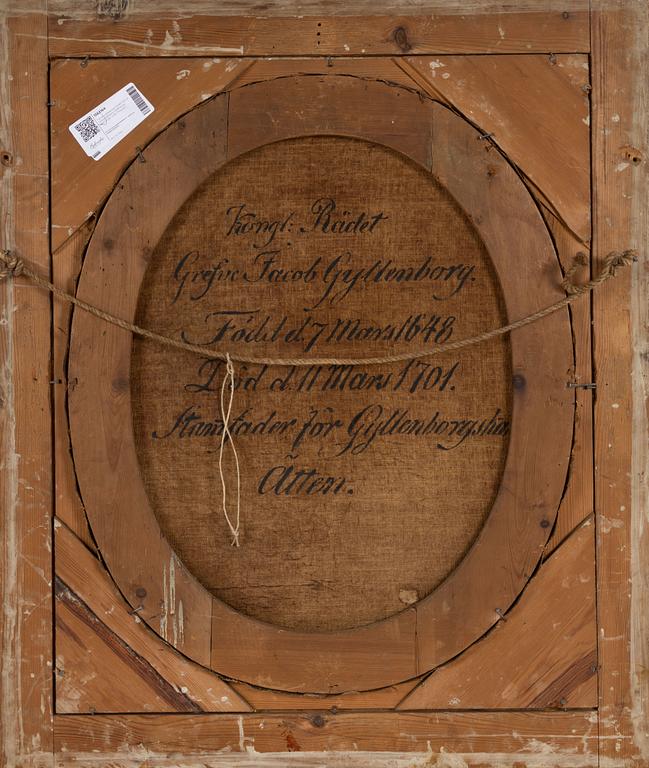 Kongl: Rådet
Grefve Jacob Gyllenborg.
Född d. 7 Mars 1648
Död d. 11 Mars 1701.
Stamfader för Gyllenborgska
Ätten.